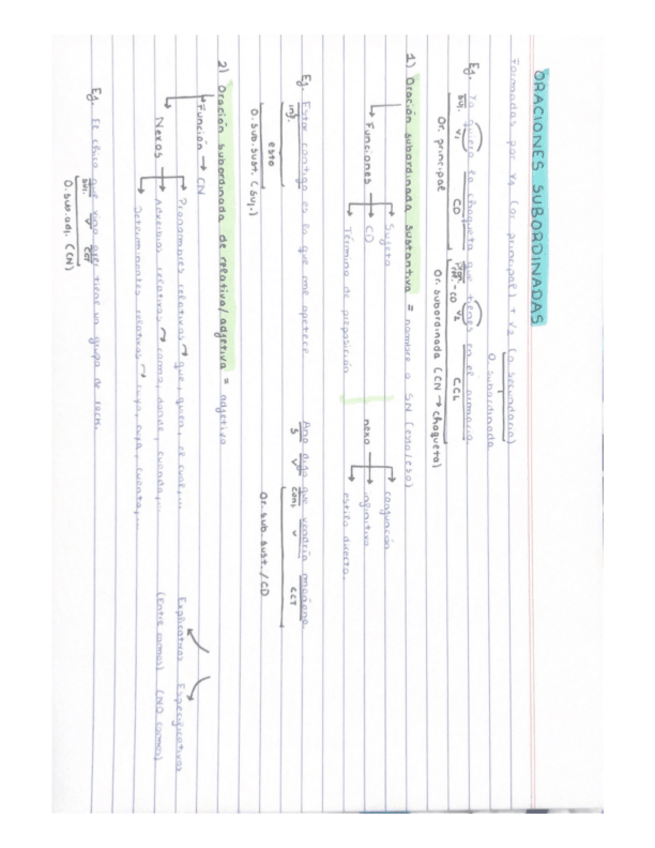 ORACIONES SUBORDINADAS
Formadas por V1 (or. principal) + V2 (o secundaria)
O. Subordinada
Eg. Yo quiero la chaqueta que tienes en el armario
suj. V1 CD V2 CCL
Or. principal Or. subordinada (CN → chaqueta)
1) Oración subordinada sustantiva = nombre o SN (eso/eso)
→ Funciones → Sujeto
→ CD
→ Término de preposición
nexo → conjunción
→ infinitivo
→ estilo directo.
Eg. Estar contigo es lo que me apetece
inf.
esto
O. sub. sust. (suj.)
Ana dijo que vendría mañana.
S V conj V CCT
Or. sub. sust. / CD
2) Oración subordinada de relativo/adjetiva = adjetivo
→ Función → CN
→ Nexos → Pronombres relativos → que, quien, el cual,...
→ Adverbios relativos → como, donde, cuando,...
→ Determinantes relativos → cuyo, cuya, cuanta,...
Explicativas Especificativas
(Entre comas) (NO comas)
Eg. El chico que vino ayer tiene un grupo de rock.
suj. V CCT
O. sub. adj. (CN)